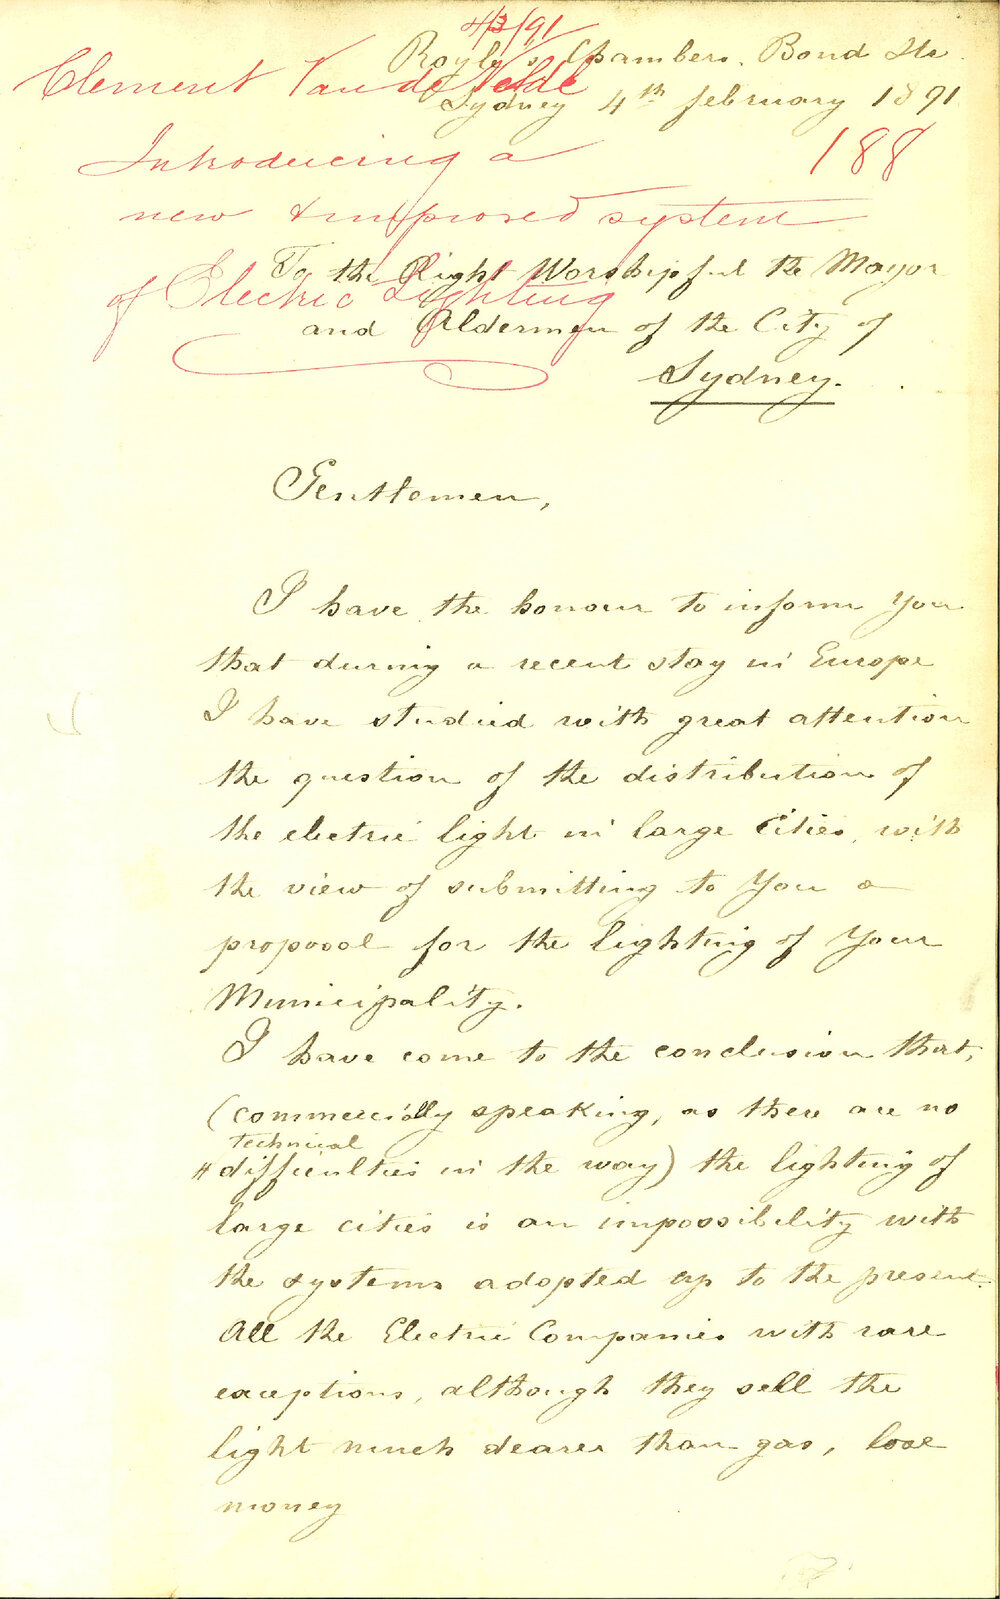 4/3/91
Royle's Chambers. Bond Str.
Clement Van de Velde
Sydney 4th february 1891
Introducing a
188
new & improved system
To the Right Worshipful the Mayor
of Electric Lighting
and Aldermen of the City of
Sydney.
Gentlemen,
I have the honour to inform You
that during a recent stay in Europe
I have studied with great attention
the question of the distribution of
the electric light in large Cities, with
the view of submitting to You a
proposal for the lighting of Your
Municipality.
I have come to the conclusion that,
(commercially speaking, as there are no
technical
# difficulties in the way) the lighting of
large cities is an impossibility with
the systems adopted up to the present.
All the Electric Companies with rare
exceptions, although they sell the
light much dearer than gas, lose
money